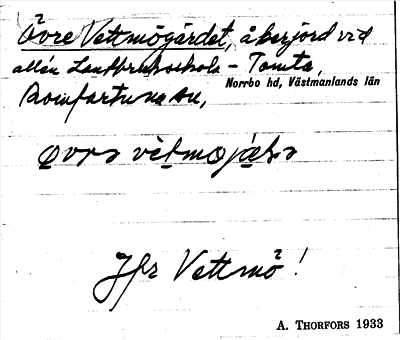 Övre Vettmögärdet, åkerjord vid
allén Landtbruksskola - Tomta,
Norrbo hd, Västmanlands län
Romfartuna sn,
övrə vètmojæḷə
Jfr Vettmö!
A. THORFORS 1933